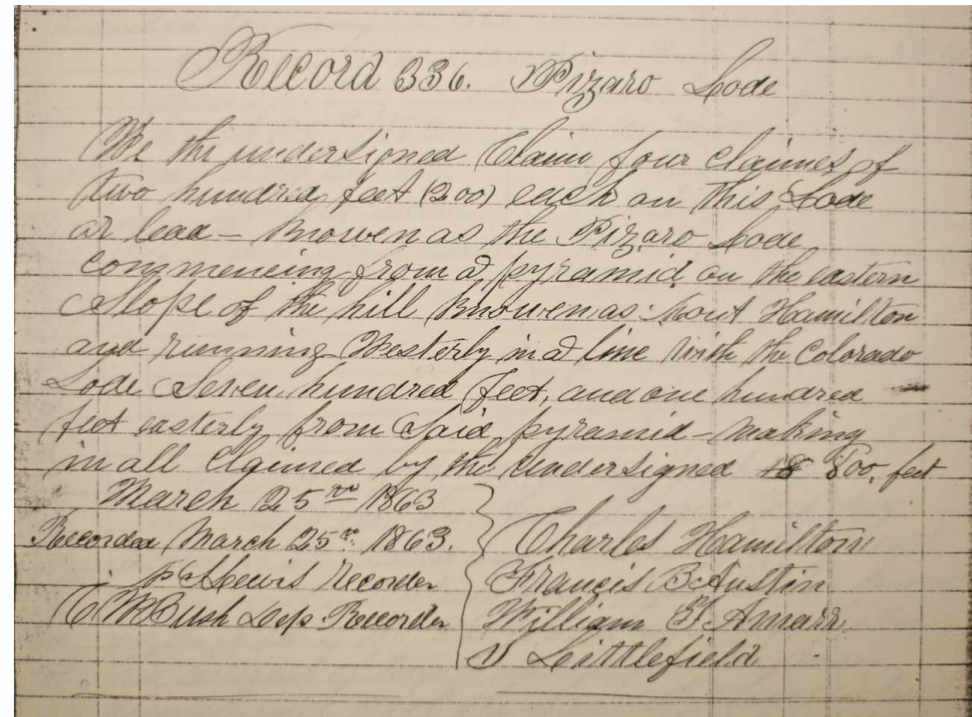 Record 336. Pizaro Lode
We the undersigned Claim four claimes of
two hundred feet (200) each on this Lode
or lead - Knowen as the Pizaro Lode
commencing from a pyramid on the eastern
Slope of the hill Knowen as Mout Hamilton
and running Westerly in a line with the Colorado
Lode Seven hundred feet, and one hundred
feet easterly from Said pyramid - making
in all Claimed by the undersigned 800, feet
March 25 1863
Recorded March 25 1863.
Lewis Recorder
C W Bush Dep Recorder
Charles Hamilton
Francis B Austin
William
Littlefield